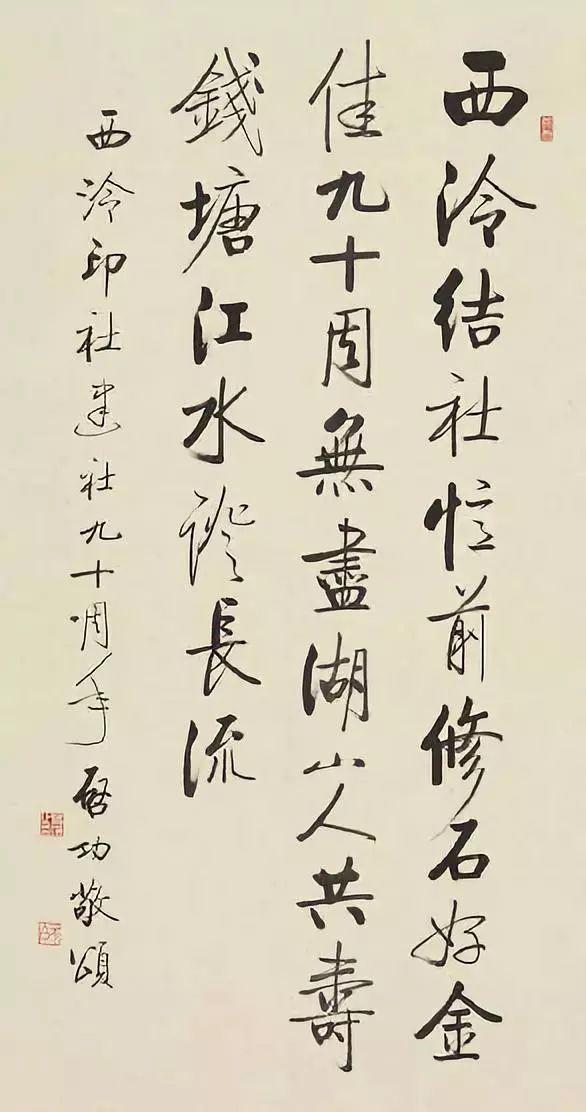 西泠結社憶前修石好金
佳九十周無盡湖山人共壽
錢塘江水證長流
西泠印社建社九十週年啓功敬頌